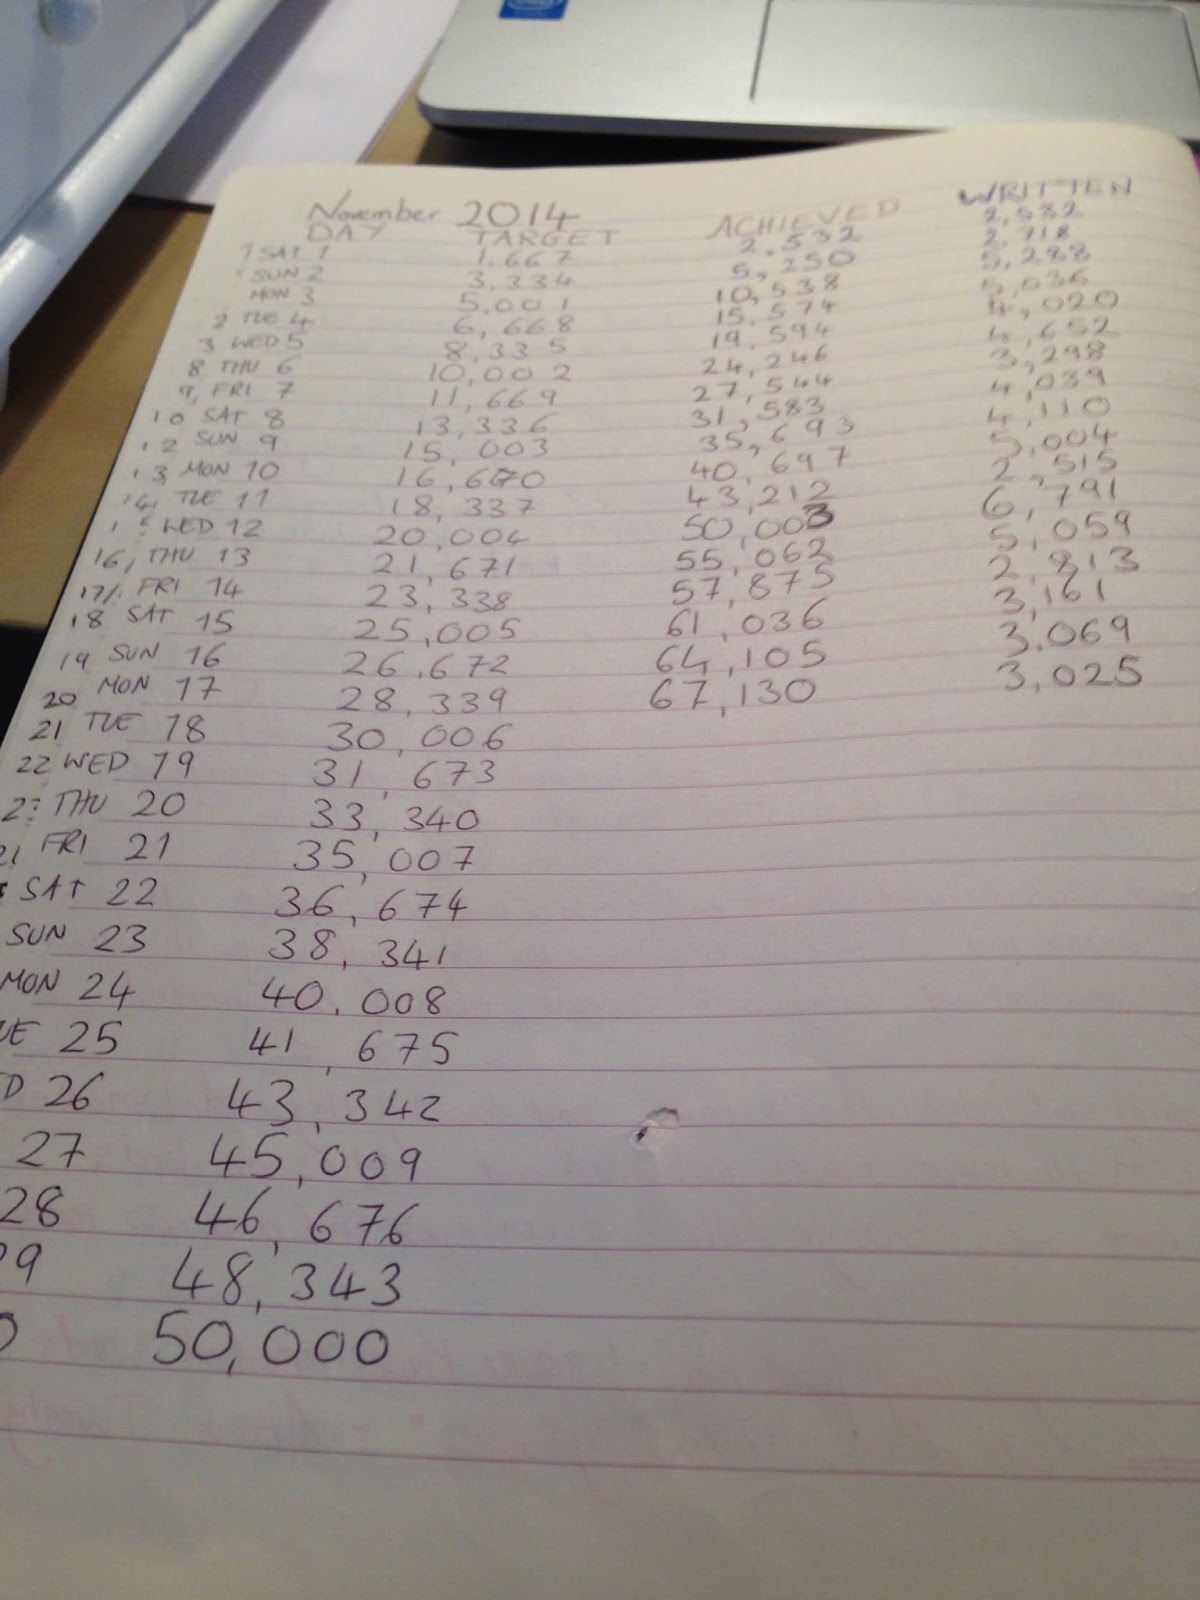 November 2014
DAY TARGET ACHIEVED WRITTEN
SAT 1 1.667 2.532 2,582
SUN 2 3.334 5,250 2,718
MON 3 5,001 10,538 5,288
2 TUE 4 6,668 15,574 5,036
3 WED 5 8,335 19,594 4,020
8 THU 6 10,002 24,246 4,652
9, FRI 7 11,669 27,544 3,298
10 SAT 8 13,336 31,583 4,039
12 SUN 9 15,003 35,693 4,110
13 MON 10 16,670 40,697 5,004
14, TUE 11 18,337 43,212 2,515
WED 12 20,004 50,003 6,791
16, THU 13 21,671 55,062 5,059
17/ FRI 14 23,338 57,875 2,813
18 SAT 15 25,005 61,036 3,161
19 SUN 16 26,672 64,105 3.069
20 MON 17 28,339 67,130 3,025
21 TUE 18 30,006
22 WED 19 31,673
THU 20 33,340
FRI 21 35,007
SAT 22 36,674
SUN 23 38,341
MON 24 40,008
UE 25 41,675
D 26 43,342
27 45,009
28 46,676
9 48,343
0 50,000